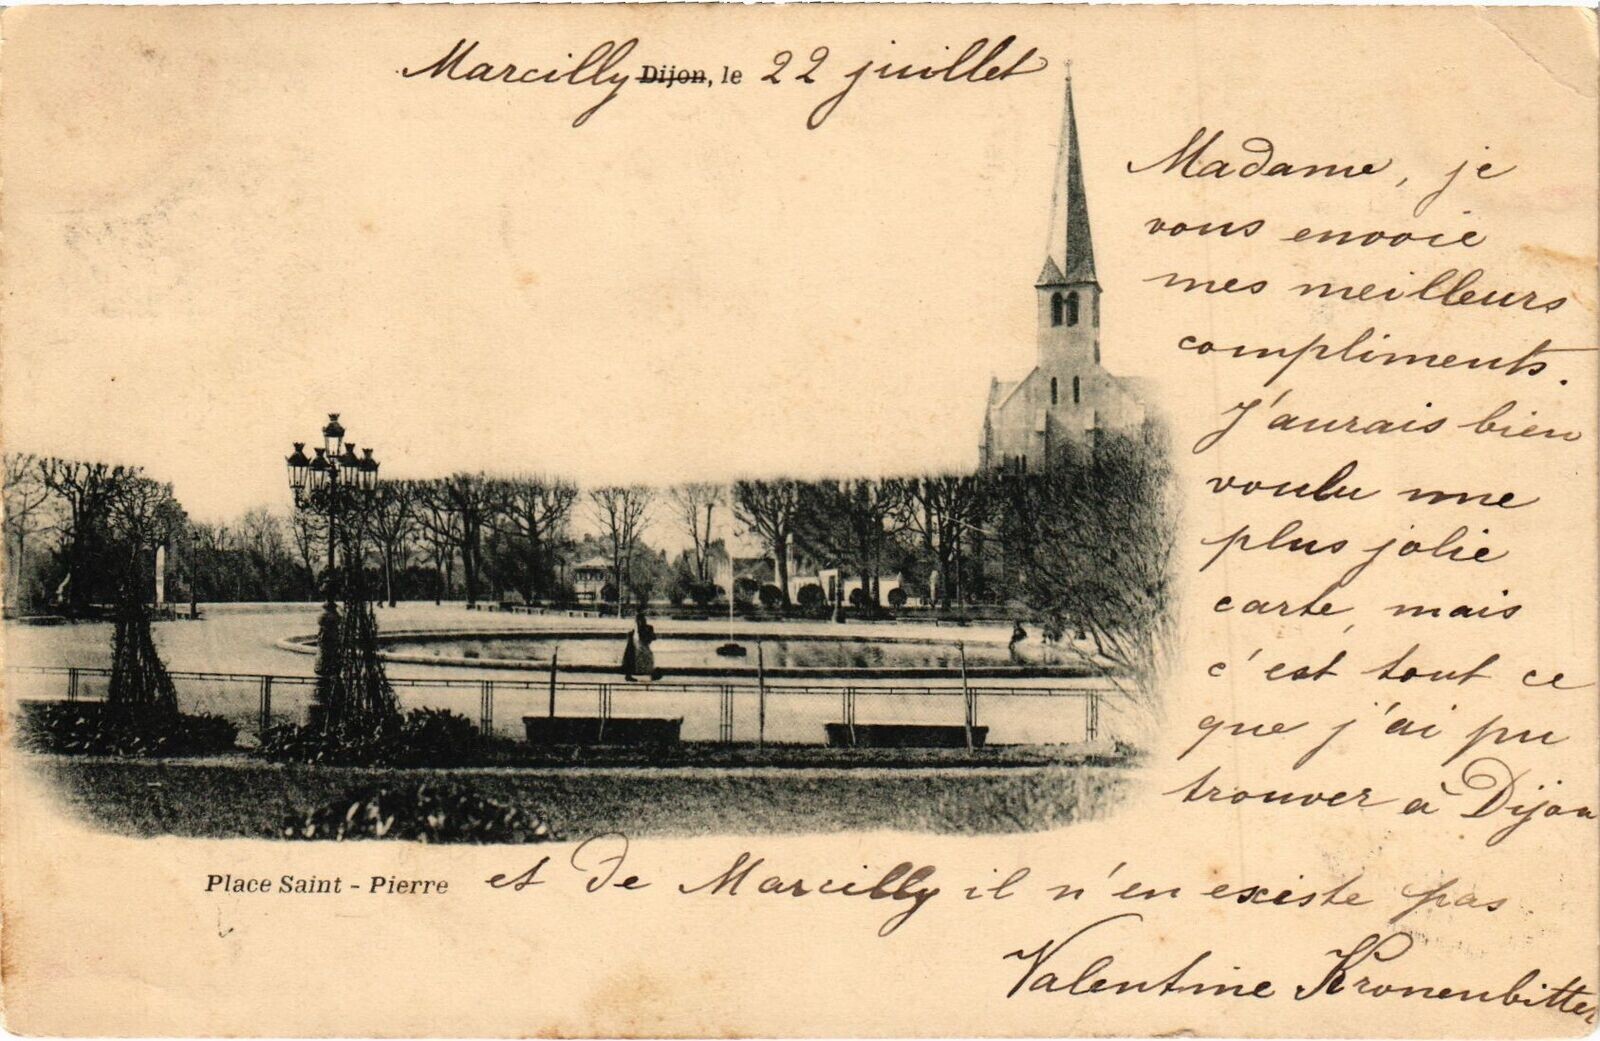 Marcilly Dijon, le 22 juillet
Madame, je
vous envoie
mes meilleurs
compliments.
J'aurais bien
voulu une
plus jolie
carte, mais
c'est tout ce
que j'ai pu
trouver à Dijon
Place Saint - Pierre et de Marcilly il n'en existe pas
Valentine Kronenbitter